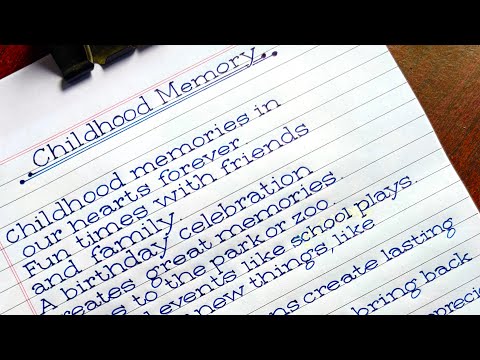 Childhood Memory
Childhood memories in
our hearts forever.
Fun times with friends
and family.
A birthday celebration
creates great memories.
to the park or zoo.
events like school plays.
new things, like
create lasting
bring back